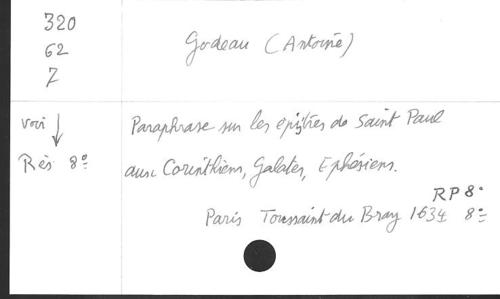 320
62
7
Godeau (Antoine)
voir
Rés 8°
Paraphrase sur les epîtres de Saint Paul
aux Corinthiens, Galates, Ephésiens.
RP 8°
Paris Toussaint du Bray 1634 8°